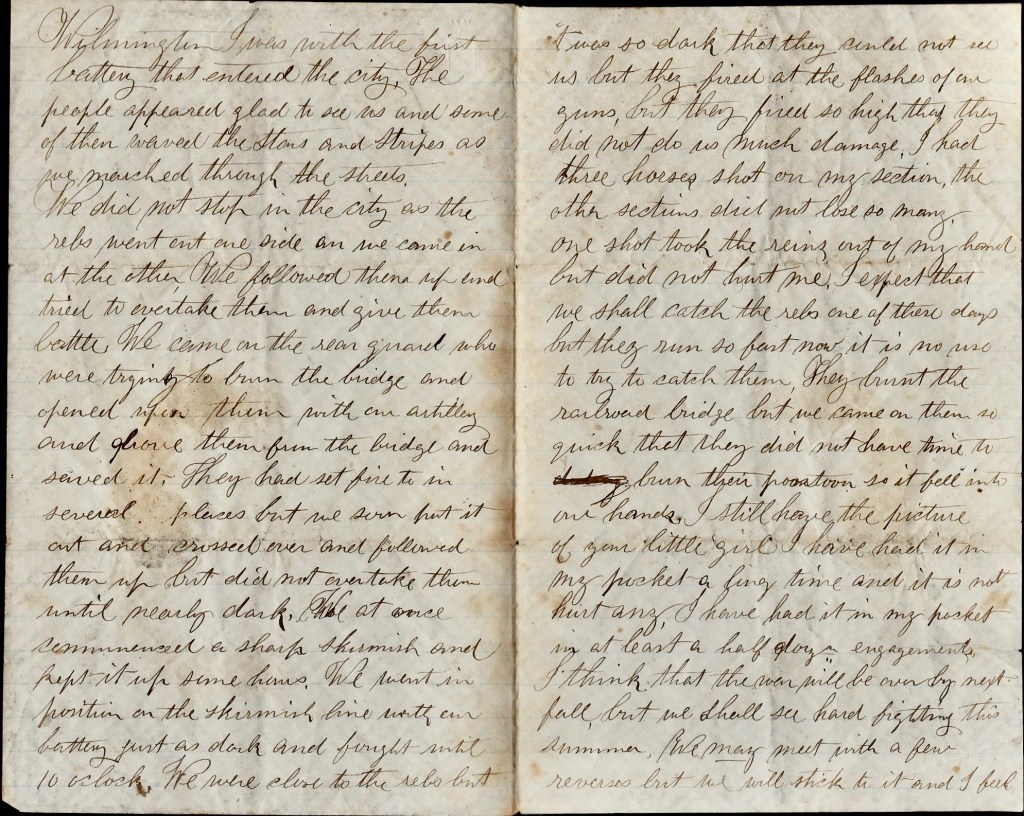 Wilmington I was with the first
battery that entered the city. The
people appeared glad to see us and some
of them waved the stars and stripes as
we marched through the streets.
We did not stop in the city as the
rebs went out one side as we came in
at the other. We followed them up and
tried to overtake them and give them
battle. We came on the rear guard who
were trying to burn the bridge and
opened upon them with our artillery
and drove them from the bridge and
saved it. They had set fire to in
several places but we soon put it
out and crossed over and followed
them up but did not overtake them
until nearly dark. We at once
commenced a sharp skirmish and
kept it up some hours. We went in
position on the skirmish line with our
battery just as dark and fought until
10 oclock. We were close to the rebs but
it was so dark that they could not see
us but they fired at the flashes of our
guns, but they fired so high that they
did not do us much damage. I had
three horses shot on my section, the
other sections did not lose so many
one shot took the reins out of my hand
but did not hurt me. I expect that
we shall catch the rebs one of these days
but they run so fast now it is no use
to try to catch them. They burnt the
railroad bridge but we came on them so
quick that they did not have time to
burn their pontoon so it fell into
our hands. I still have the picture
of your little girl I have had it in
my pocket a long time and it is not
hurt any, I have had it in my pocket
in at least a half dozn engagements.
I think that the war will be over by next
fall but we shall see hard fighting this
summer, We may meet with a few
reverses but we will stick to it and I feel